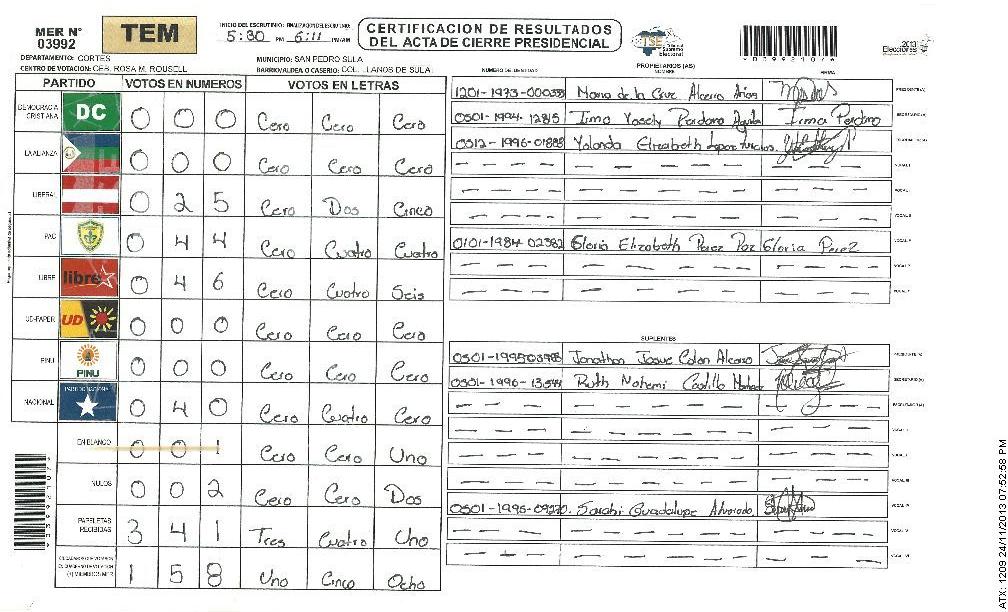 MER N° 03992
TEM
INICIO DEL ESCRUTINIO: FINALIZACION DEL ESCRUTINIO:
5:30 PM 6:11 PM/AM
CERTIFICACION DE RESULTADOS
DEL ACTA DE CIERRE PRESIDENCIAL
TSE Tribunal Supremo Electoral
2013 Elecciones
DEPARTAMENTO: CORTES
MUNICIPIO: SAN PEDRO SULA
CENTRO DE VOTACION: CEB. ROSA M. ROUSELL
BARRIO/ALDEA O CASERIO: COL. LLANOS DE SULA
PARTIDO VOTOS EN NUMEROS VOTOS EN LETRAS
DEMOCRACIA CRISTIANA DC 0 0 0 Cero Cero Cero
LA ALIANZA 0 0 0 Cero Cero Cero
LIBERAL 0 2 5 Cero Dos Cinco
PAC 0 4 4 Cero Cuatro Cuatro
LIBRE libre 0 4 6 Cero Cuatro Seis
UD-FAPER UD 0 0 0 Cero Cero Cero
PINU PINU 0 0 0 Cero Cero Cero
NACIONAL PARTIDO NACIONAL 0 4 0 Cero Cuatro Cero
EN BLANCO 0 0 1 Cero Cero Uno
NULOS 0 0 2 Cero Cero Dos
PAPELETAS RECIBIDAS 3 4 1 Tres Cuatro Uno
CIUDADANOS QUE VOTARON
1 5 8 Uno Cinco Ocho
PROPIETARIOS (AS)
NUMERO DE IDENTIDAD NOMBRE FIRMA
1201-1973-00033 Maria de la Cruz Alcerro Arias PRESIDENTE(A)
0501-1994-12815 Irma Yosely Perdomo Aguila Irma Perdomo SECRETARIO(A)
0512-1996-01888 Yolanda Elizabeth Lopez
0101-1984-02382 Gloria Elizabeth Perez Paz Gloria Perez
SUPLENTES
Jonathan Josue Colon PRESIDENTE(A)
Ruth Nohemi Castillo SECRETARIO(A)
Sarahi Guadalupe Alvarado
ATX: 1209 24/11/2013 07:52:58 PM